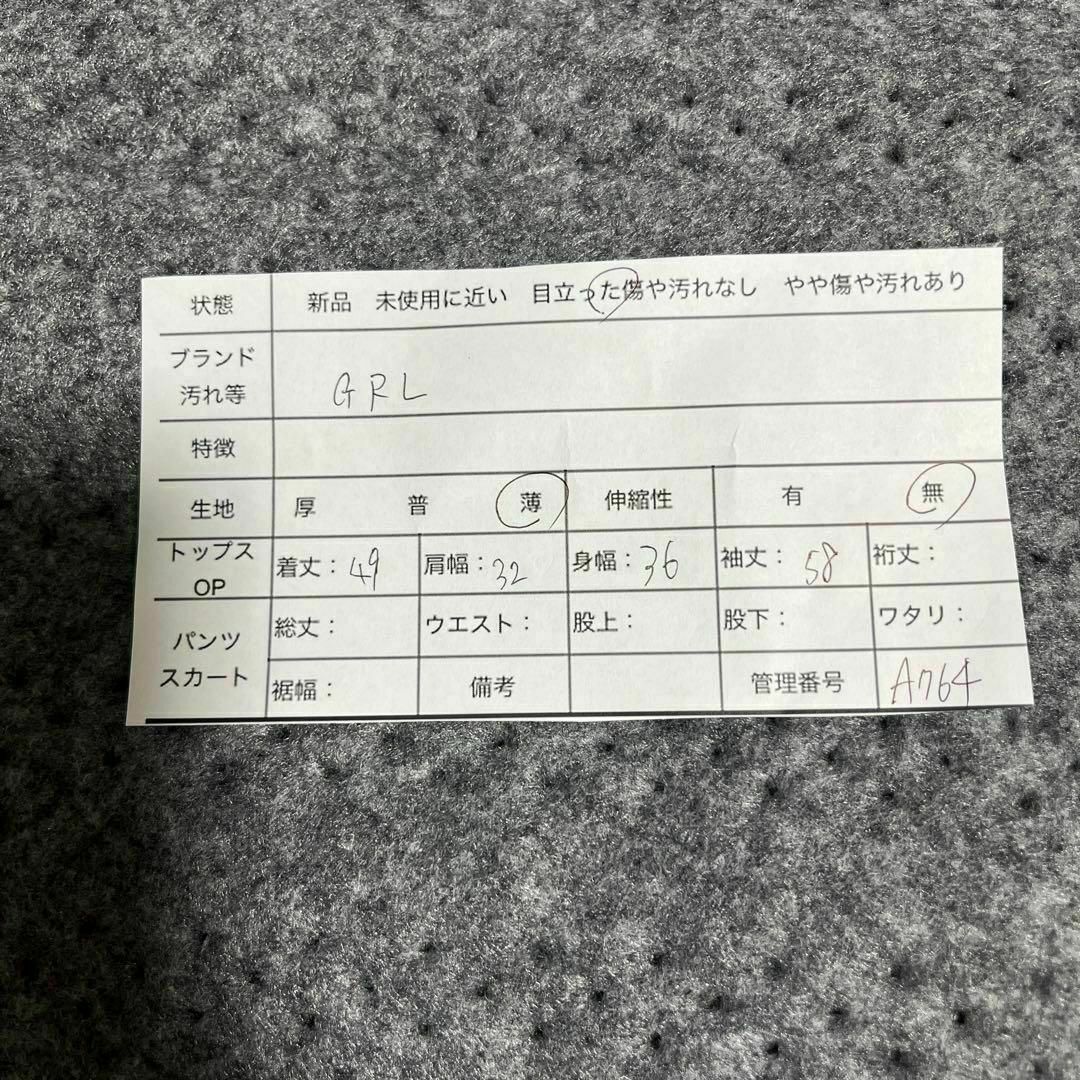 状態 新品 未使用に近い 目立った傷や汚れなし やや傷や汚れあり
ブランド
汚れ等 GRL
特徴
生地 厚 普 薄 伸縮性 有 無
トップス
OP 着丈：49 肩幅：32 身幅：36 袖丈：58 裄丈：
パンツ
スカート 総丈： ウエスト： 股上： 股下： ワタリ：
裾幅： 備考 管理番号 A764